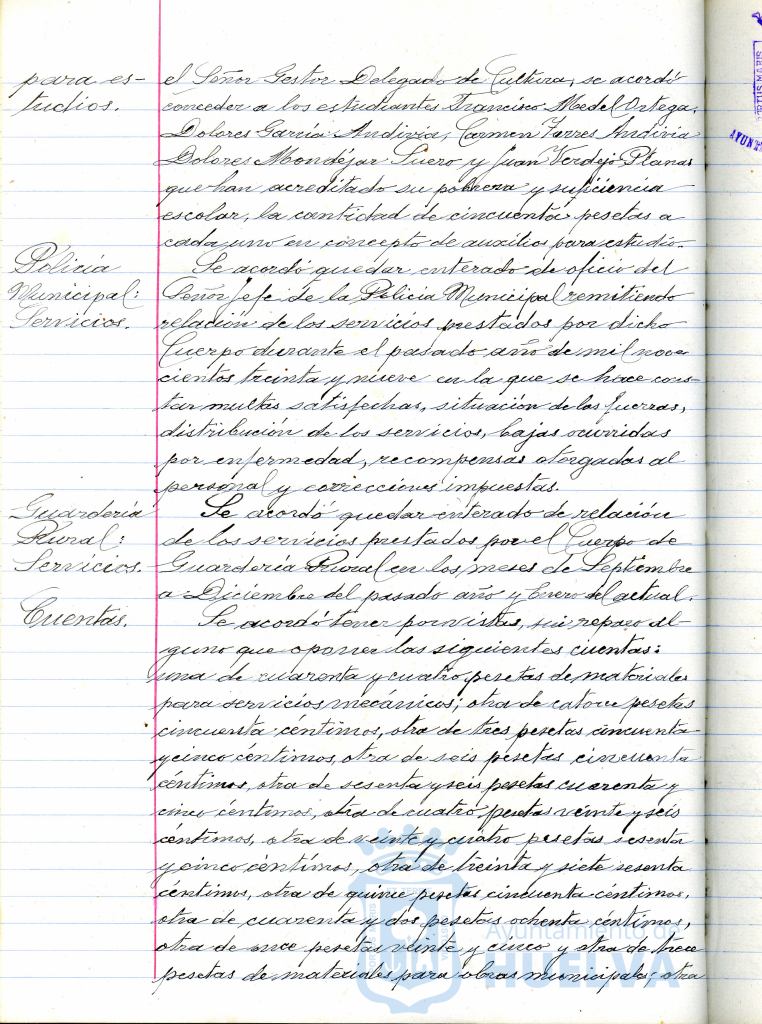 para es-
tudios.
el Señor Gestor Delegado de Cultura, se acordó
conceder a los estudiantes Francisco Medel Ortega,
Dolores García Andivia, Carmen Farres Andivia
Dolores Mondéjar Suero y Juan Verdejo Planas
que han acreditado su pobreza y suficiencia
escolar, la cantidad de cincuenta pesetas a
cada uno en concepto de auxilios para estudio.-
Policía
Municipal:
Servicios.
Se acordó quedar enterado de oficio del
Señor Jefe de la Policía Municipal remitiendo
relación de los servicios prestados por dicho
Cuerpo durante el pasado año de mil nove
cientos treinta y nueve en la que se hace cons-
tar multas satisfechas, situación de las fuerzas,
distribución de los servicios, bajas ocurridas
por enfermedad, recompensas otorgadas al
personal y correcciones impuestas.
Guardería
Rural:
Servicios.-
Se acordó quedar enterado de relación
de los servicios prestados por el Cuerpo de
Guardería Rural en los meses de Septiembre
a Diciembre del pasado año y Enero del actual.
Cuentas.
Se acordó tener por vistas, sin reparo al
guno que oponer las siguientes cuentas:
una de cuarenta y cuatro pesetas de materiales
para servicios mecánicos; otra de catorce pesetas
cincuenta céntimos, otra de tres pesetas cincuenta
y cinco céntimos, otra de seis pesetas cincuenta
céntimos, otra de sesenta y seis pesetas cuarenta y
cinco céntimos, otra de cuatro pesetas veinte y seis
céntimos, otra de veinte y cuatro pesetas sesenta
y cinco céntimos, otra de treinta y siete sesenta
céntimos, otra de quince pesetas cincuenta céntimos,
otra de cuarenta y dos pesetas ochenta céntimos,
otra de once pesetas veinte y cinco y otra de trece
pesetas de materiales para obras municipales; otra
Ayuntamiento de
HUELVA